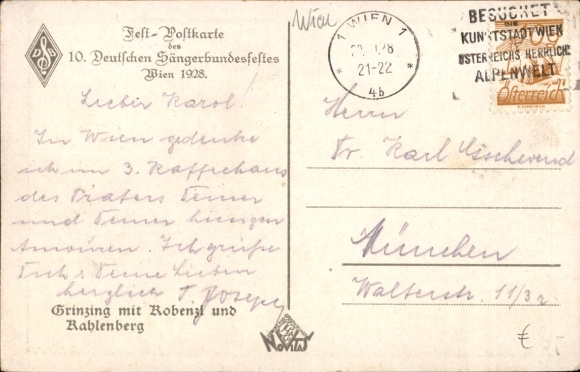 Fest-Postkarte
des
10. Deutschen Sängerbundesfestes
Wien 1928.
DSB
Lieber Karol!
In Wien gedenke
ich im 3. Kaffeehaus
des Praters Deiner
und Deiner hiesigen
Amouren. Ich grüße
Dich & Deine Lieben
herzlich
Grinzing mit Kobenzl und
Kahlenberg
Wien
1 WIEN 1
28
21-22
4b
BESUCHET
DIE
KUNSTSTADT WIEN
ÖSTERREICHS HERRLICHE
ALPENWELT
Österreich
Herrn
Dr. Karl Gschwend
München
Walterstr. 11/3r
NOVITAS
€